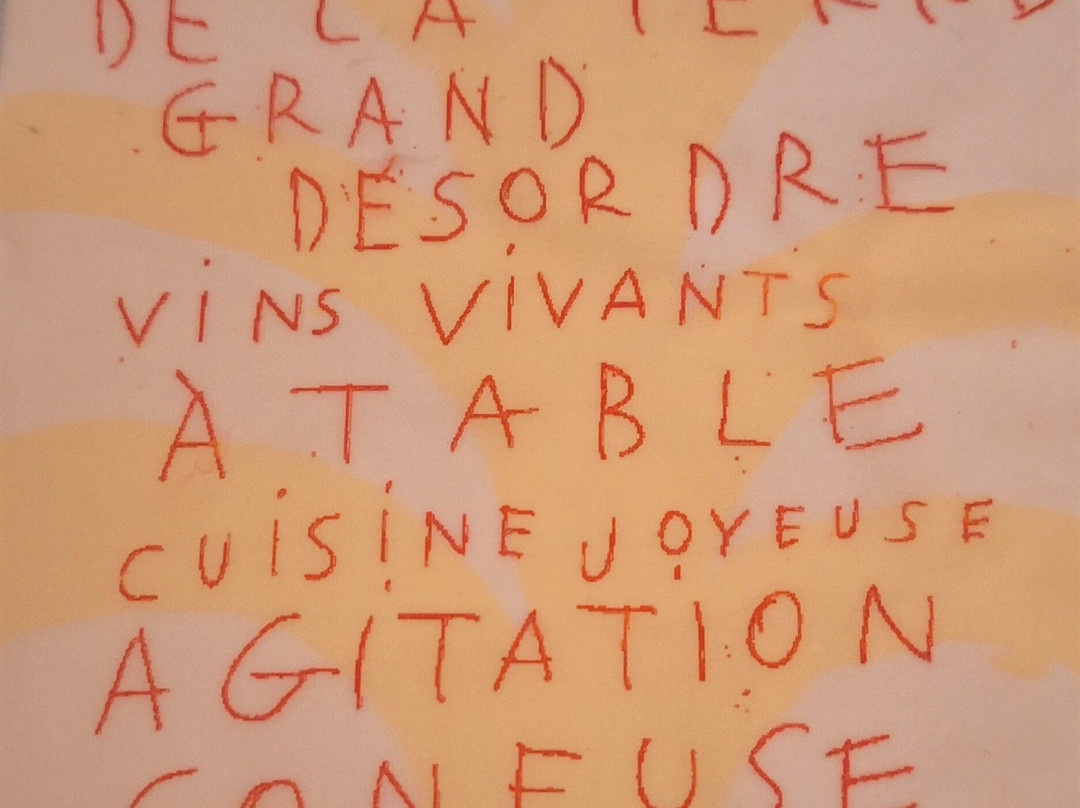 DE LA TERRE
GRAND
DÉSORDRE
ViNS ViVANTS
À TABLE
CUiSiNE JOYEUSE
AGITATION
CONFUSE